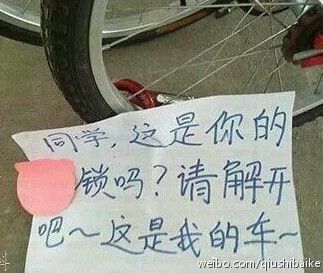 同学，这是你的
锁吗？请解开
吧～这是我的车～
weibo.com/qiushibaike